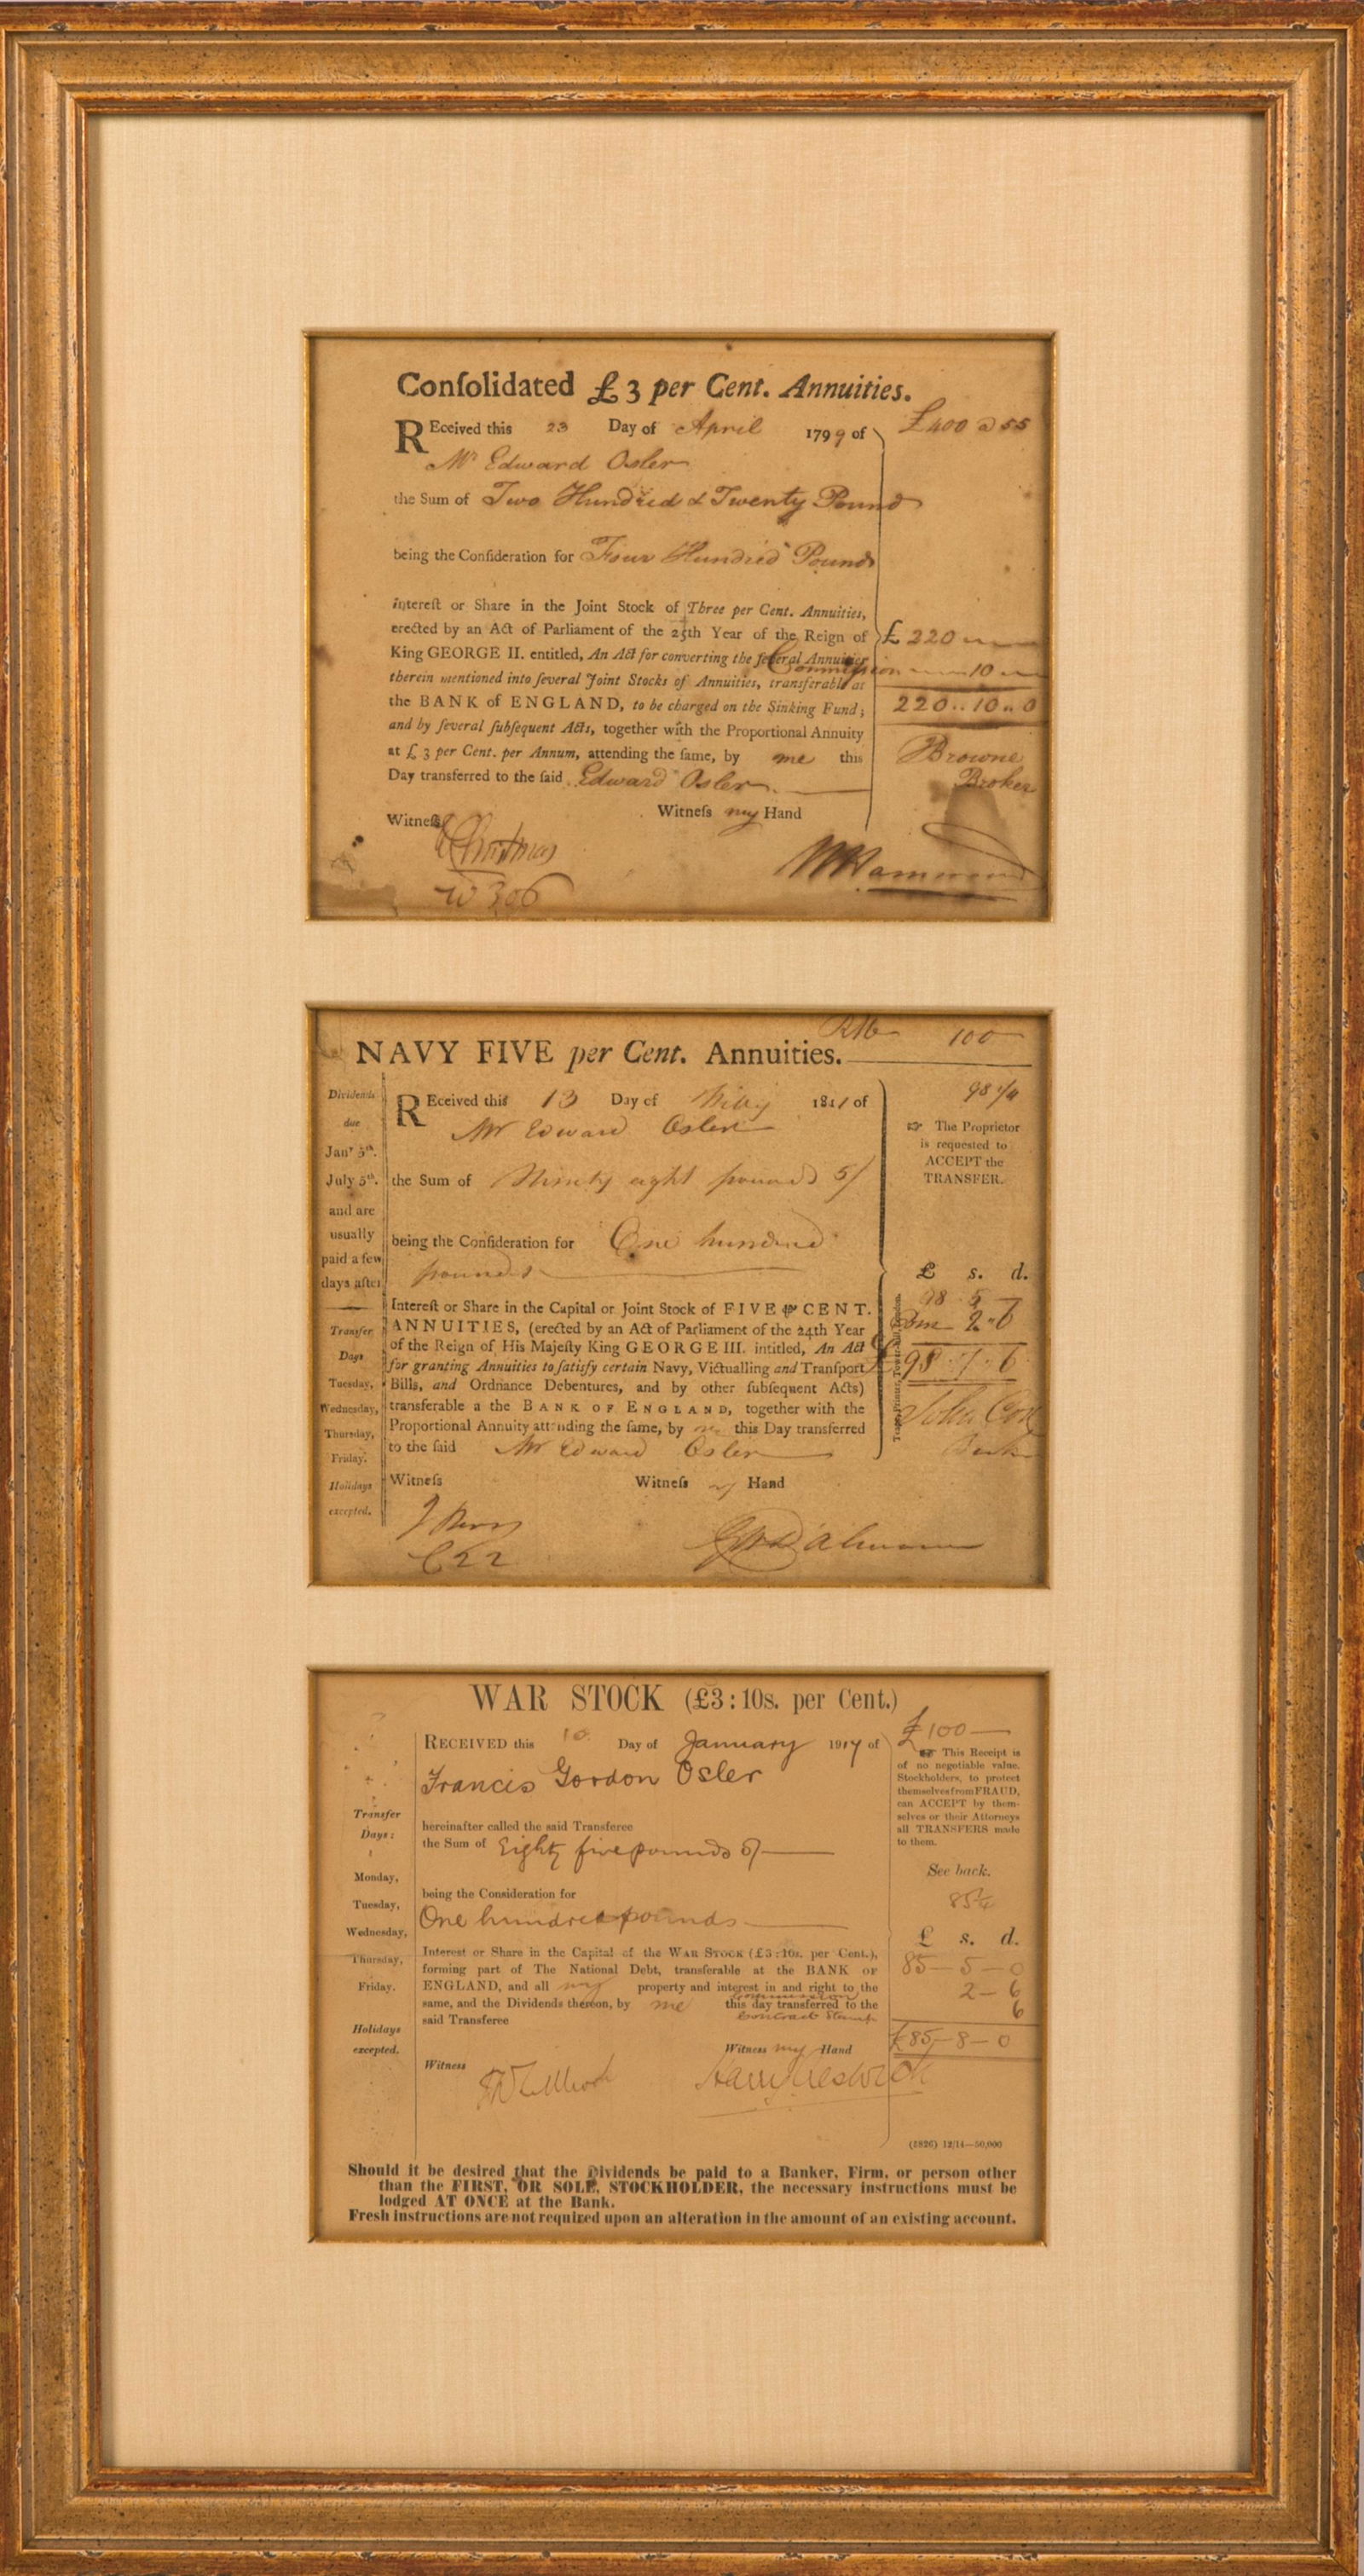 Conſolidated £3 per Cent. Annuities.
REceived this 23 Day of April 1799 of
£400 a 55
Mr Edward Osler
the Sum of Two Hundred & Twenty Pound
being the Conſideration for Four Hundred Pounds
Intereſt or Share in the Joint Stock of Three per Cent. Annuities,
erected by an Act of Parliament of the 25th Year of the Reign of
£ 220
King GEORGE II. entitled, An Act for converting the ſeveral Annuities
Commiſsion 10
therein mentioned into ſeveral Joint Stocks of Annuities, transferable at
the BANK of ENGLAND, to be charged on the Sinking Fund;
220..10..0
and by ſeveral ſubſequent Acts, together with the Proportional Annuity
at £3 per Cent. per Annum, attending the ſame, by me this
Browne
Day transferred to the ſaid Edward Osler
Broker
Witneſs my Hand
Witneſs
W 306
100
NAVY FIVE per Cent. Annuities.
98 1/4
Dividends
due
Jany 5th.
July 5th.
and are
usually
paid a few
days after
Transfer
Days
Tuesday,
Wednesday,
Thursday,
Friday.
Holidays
excepted.
REceived this 13 Day of 1811 of
Mr Edward Osler
the Sum of Ninety eight pounds 5/
being the Conſideration for One hundred
pounds
Intereſt or Share in the Capital or Joint Stock of FIVE per CENT.
ANNUITIES, (erected by an Act of Parliament of the 24th Year
of the Reign of His Majeſty King GEORGE III. intitled, An Act
for granting Annuities to ſatisfy certain Navy, Victualling and Tranſport
Bills, and Ordnance Debentures, and by other ſubſequent Acts)
transferable a the BANK OF ENGLAND, together with the
Proportional Annuity attending the ſame, by me this Day transferred
to the ſaid Mr Edward Osler
Witneſs
Witneſs my Hand
C22
☞ The Proprietor
is requested to
ACCEPT the
TRANSFER.
£ s. d.
98 5
2 6
98 7 6
John Cox
WAR STOCK (£3:10s. per Cent.)
Transfer
Days:
Monday,
Tuesday,
Wednesday,
Thursday,
Friday.
Holidays
excepted.
RECEIVED this 10 Day of January 1917 of
Francis Gordon Osler
hereinafter called the said Transferee
the Sum of Eighty five pounds 5/
being the Consideration for
One hundred pounds
Interest or Share in the Capital of the WAR STOCK (£3:10s. per Cent.),
forming part of The National Debt, transferable at the BANK OF
ENGLAND, and all my property and interest in and right to the
same, and the Dividends thereon, by me this day transferred to the
said Transferee
Commission
Contract Stamp
Witness my Hand
Witness
£100
☞ This Receipt is
of no negotiable value.
Stockholders, to protect
themselves from FRAUD,
can ACCEPT by them-
selves or their Attorneys
all TRANSFERS made
to them.
See back.
85 1/4
£ s. d.
85 - 5 - 0
2 - 6
6
£85 - 8 - 0
(1826) 12/14—50,000
Should it be desired that the Dividends be paid to a Banker, Firm, or person other
than the FIRST, OR SOLE, STOCKHOLDER, the necessary instructions must be
lodged AT ONCE at the Bank.
Fresh instructions are not required upon an alteration in the amount of an existing account.